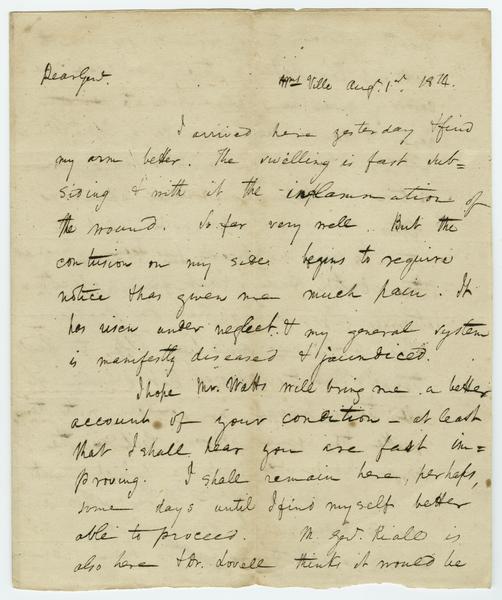 Dear Genl. Wms Ville Augt. 1st. 1814.
I arrived here yesterday & find
my arm better. The swelling is fast sub=
siding & with it the inflammation of
the wound. So far very well. But the
contusion on my side begins to require
notice & has given me much pain. It
has risen under neglect. & my general system
is manifestly diseased & jaundiced.
I hope Mr. Watts will bring me a better
account of your condition - at least
that I shall hear you are fast im=
proving. I shall remain here, perhaps,
some days until I find myself better
able to proceed. M. Genl. Riall is
also here & Dr. Lovell thinks it would be